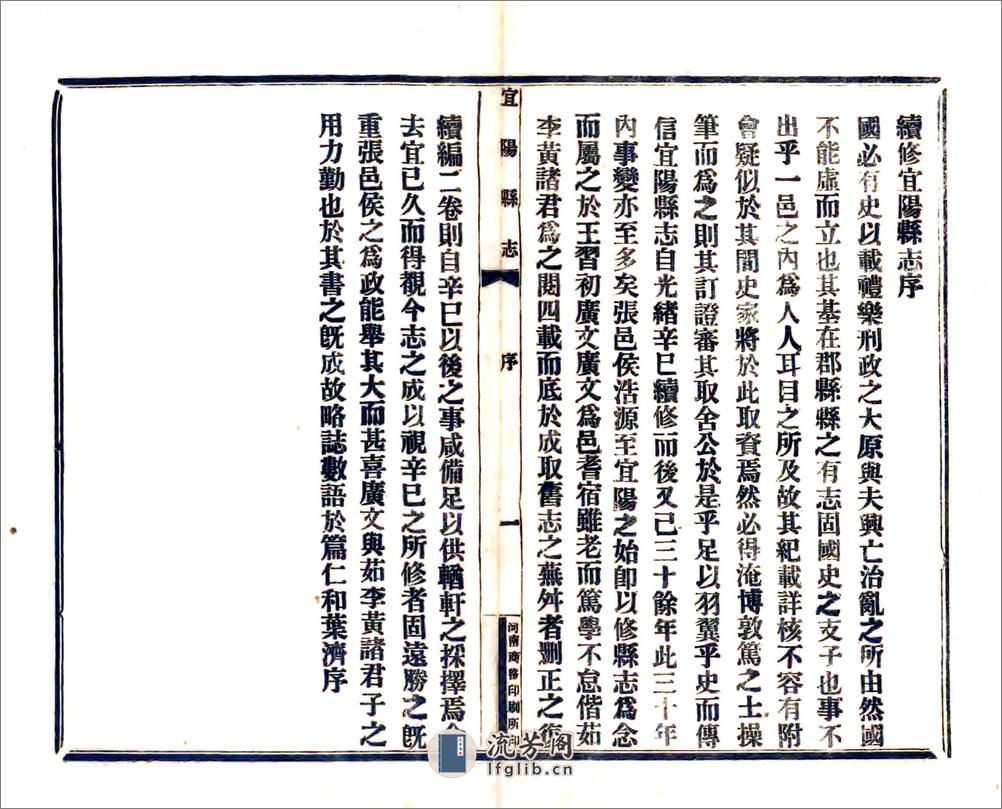 續修宜陽縣志序
國必有史以載禮樂刑政之大原與夫興亡治亂之所由然國
不能虛而立也其基在郡縣縣之有志固國史之支子也事不
出乎一邑之內爲人人耳目之所及故其紀載詳核不容有附
會疑似於其間史家將於此取資焉然必得淹博敦篤之士操
筆而爲之則其訂證審其取舍公於是乎足以羽翼乎史而傳
信宜陽縣志自光緒辛巳續修而後又已三十餘年此三十年
內事變亦至多矣張邑侯浩源至宜陽之始卽以修縣志爲念
而屬之於王習初廣文廣文爲邑耆宿雖老而篤學不怠偕茹
李黃諸君爲之閱四載而底於成取舊志之蕪舛者刪正之復
宜陽縣志 序 一 河南商務印刷所印
續編二卷則自辛巳以後之事咸備足以供輶軒之採擇焉
去宜已久而得觀今志之成以視辛巳之所修者固遠勝之旣
重張邑侯之爲政能舉其大而甚喜廣文與茹李黃諸君子之
用力勤也於其書之旣成故略誌數語於篇仁和葉濟序
流芳阁
lfglib.cn